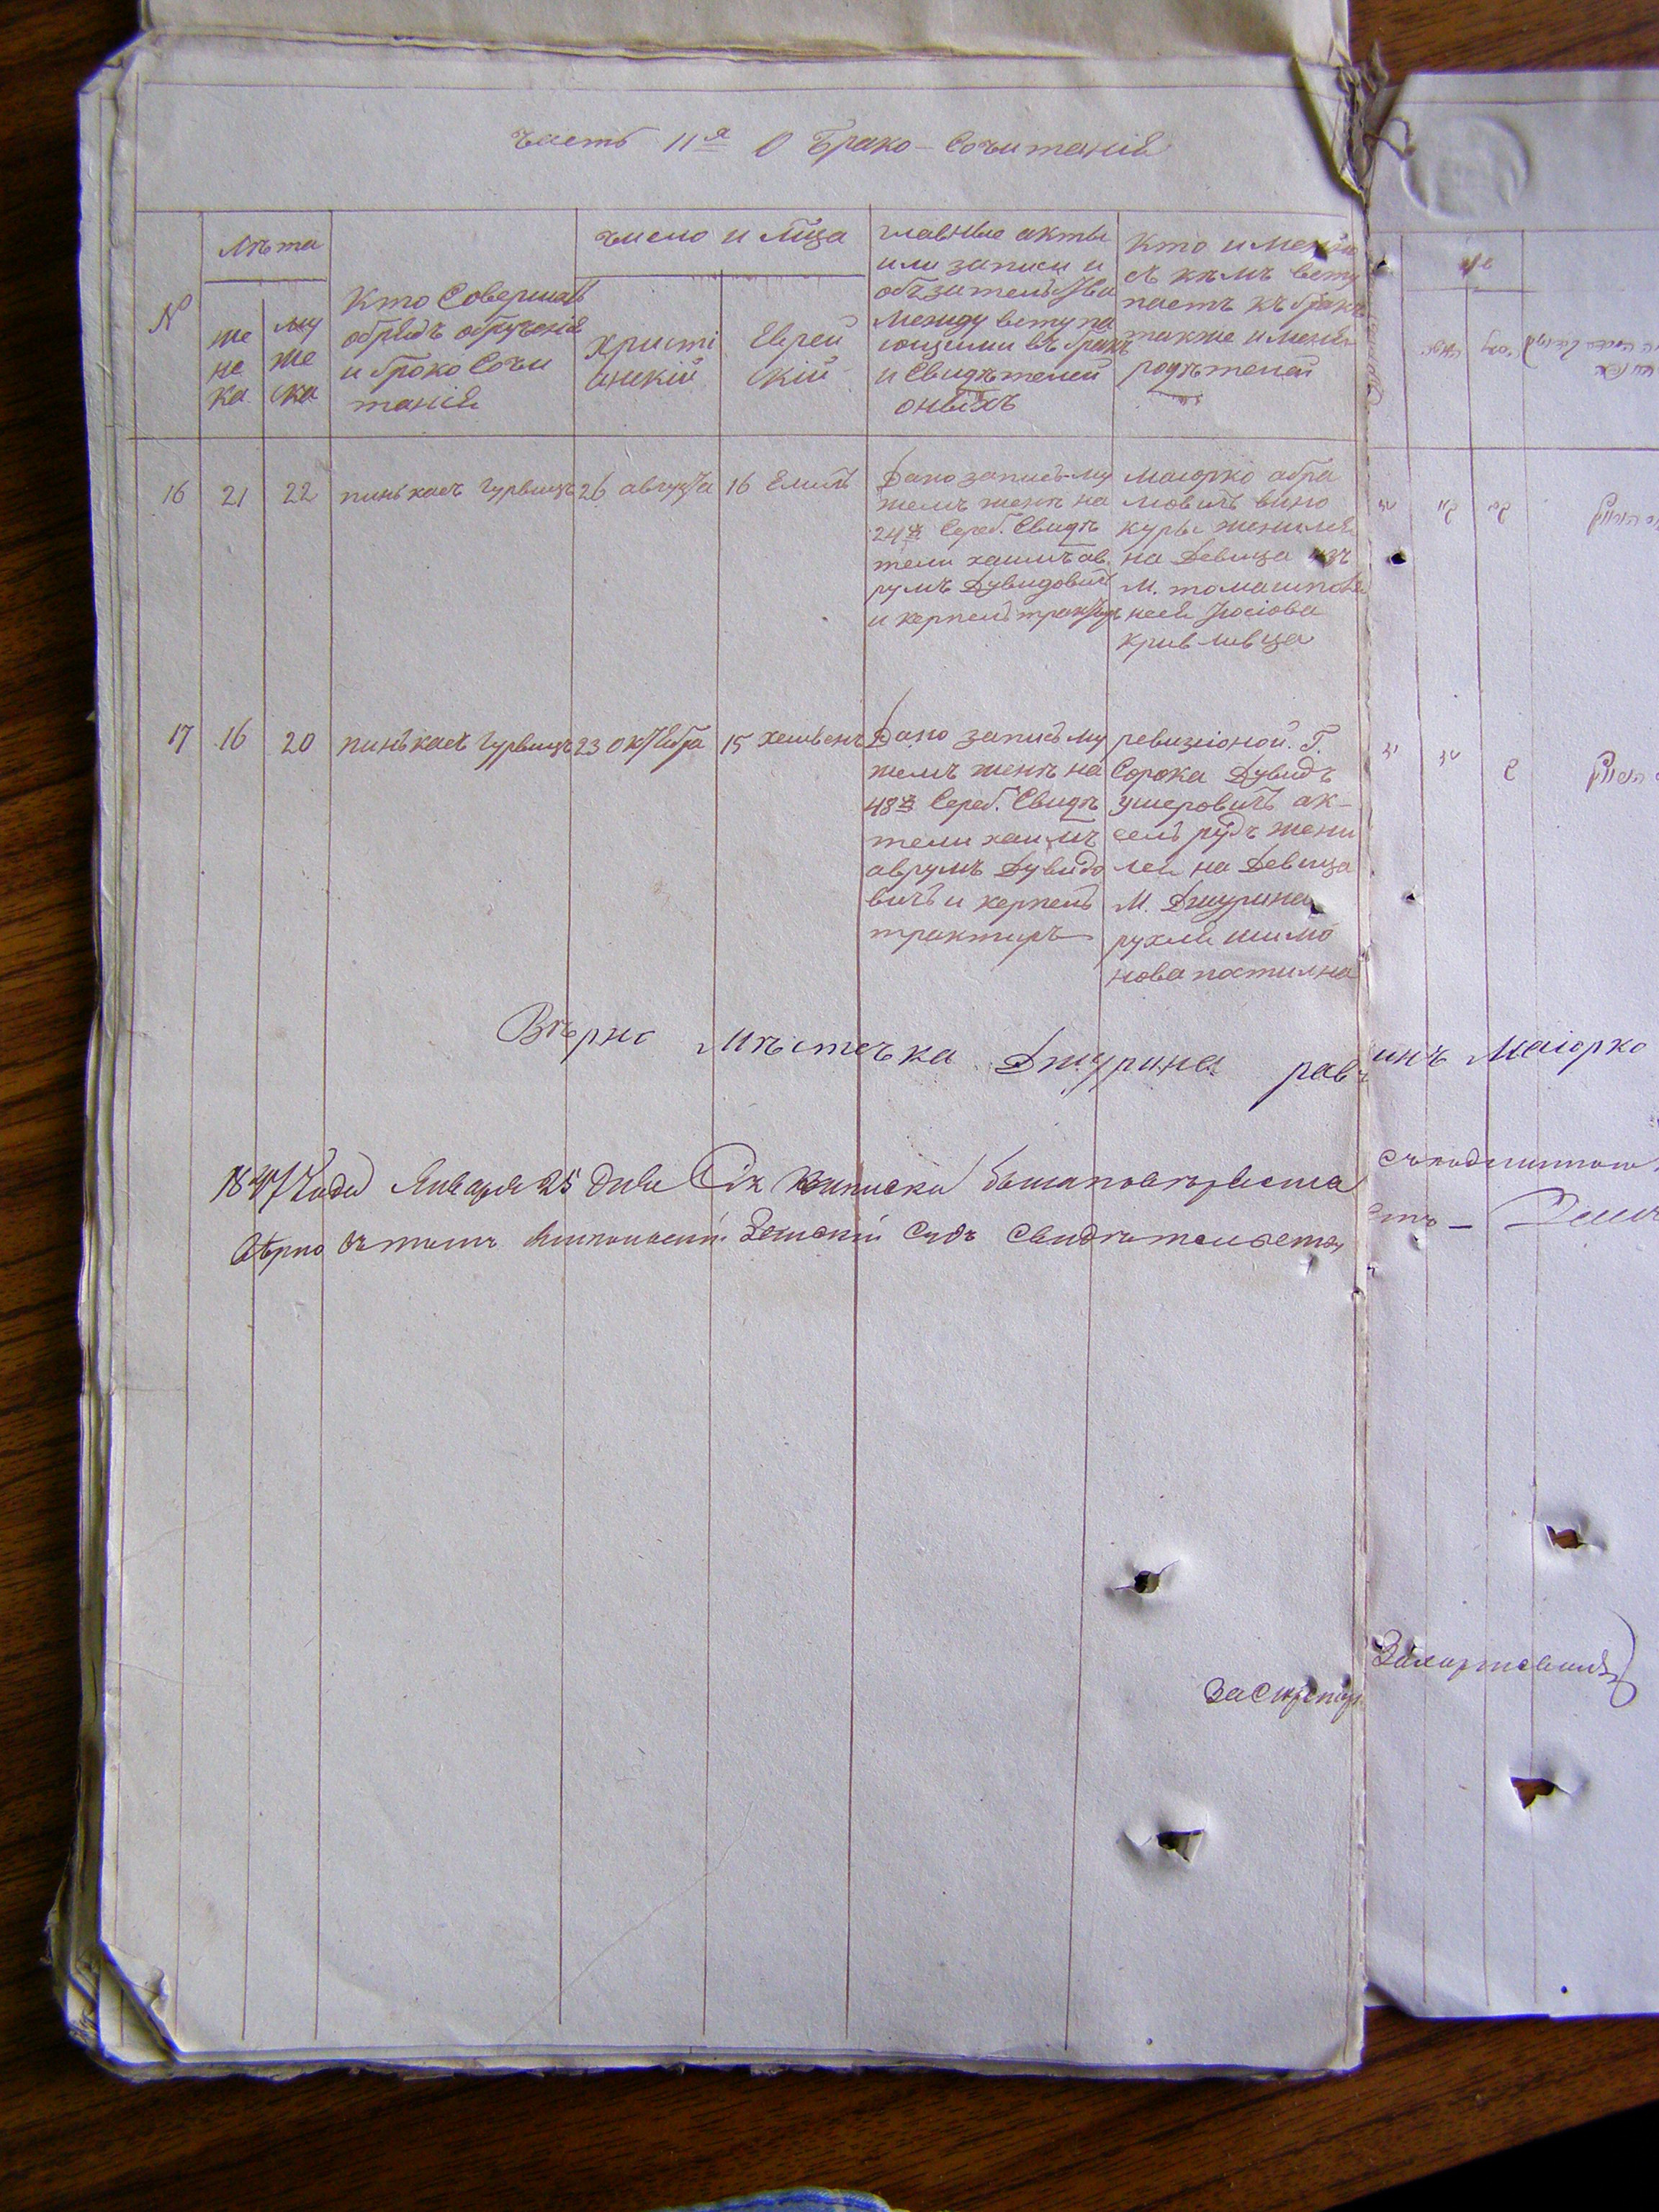 Часть II я О Брако-Сочитанія
№
лѣта
же
не
ка
му
же
ска
Кто Совершалъ
обрядъ обрученія
и брако Сочи
танія
число и лица
христі
анский
Еврей
скій
главные акты
или записи и
обѣзательства
между всту па
ющими въ бракъ
и Свидѣтелей
оныхъ
Кто имено
съ кѣмъ всту
паетъ къ бракъ
также имена
родѣтелей
16
21
22
пинькасъ Гурвицъ
26 августа
16 Елиль
Дано запись му
жемъ женѣ на
24 Сереб. Свидѣ
тели хаимъ ав
румъ Дувидовичъ
и керпель трактиръ
Маіорко абра
мовичъ вино
куръ женился
на Девица изъ
М. томашполя
нося Іосіова
кривливца
17
16
20
пинькасъ Гурвицъ
23 октября
15 хешвенъ
Дано запись му
жемъ женѣ на
48 Сереб. Свидѣ
тели хаимъ
аврумъ Дувидо
вичъ и керпель
трактиръ
ревизіоной. Г.
Сорока Дувидъ
ушеровичъ ак-
сельрудъ жени
лся на Девица
М. Джурина
рухля шимо
нова постилна
Вѣрно Мѣстечка Джурина рав инъ Маіорко
1847 Года Января 25 дня Сія выписка была повѣряема съ подлинною
Вѣрно въ томъ Ямпольскій Земскій Судъ Свидѣтельству етъ —
За Секретаря